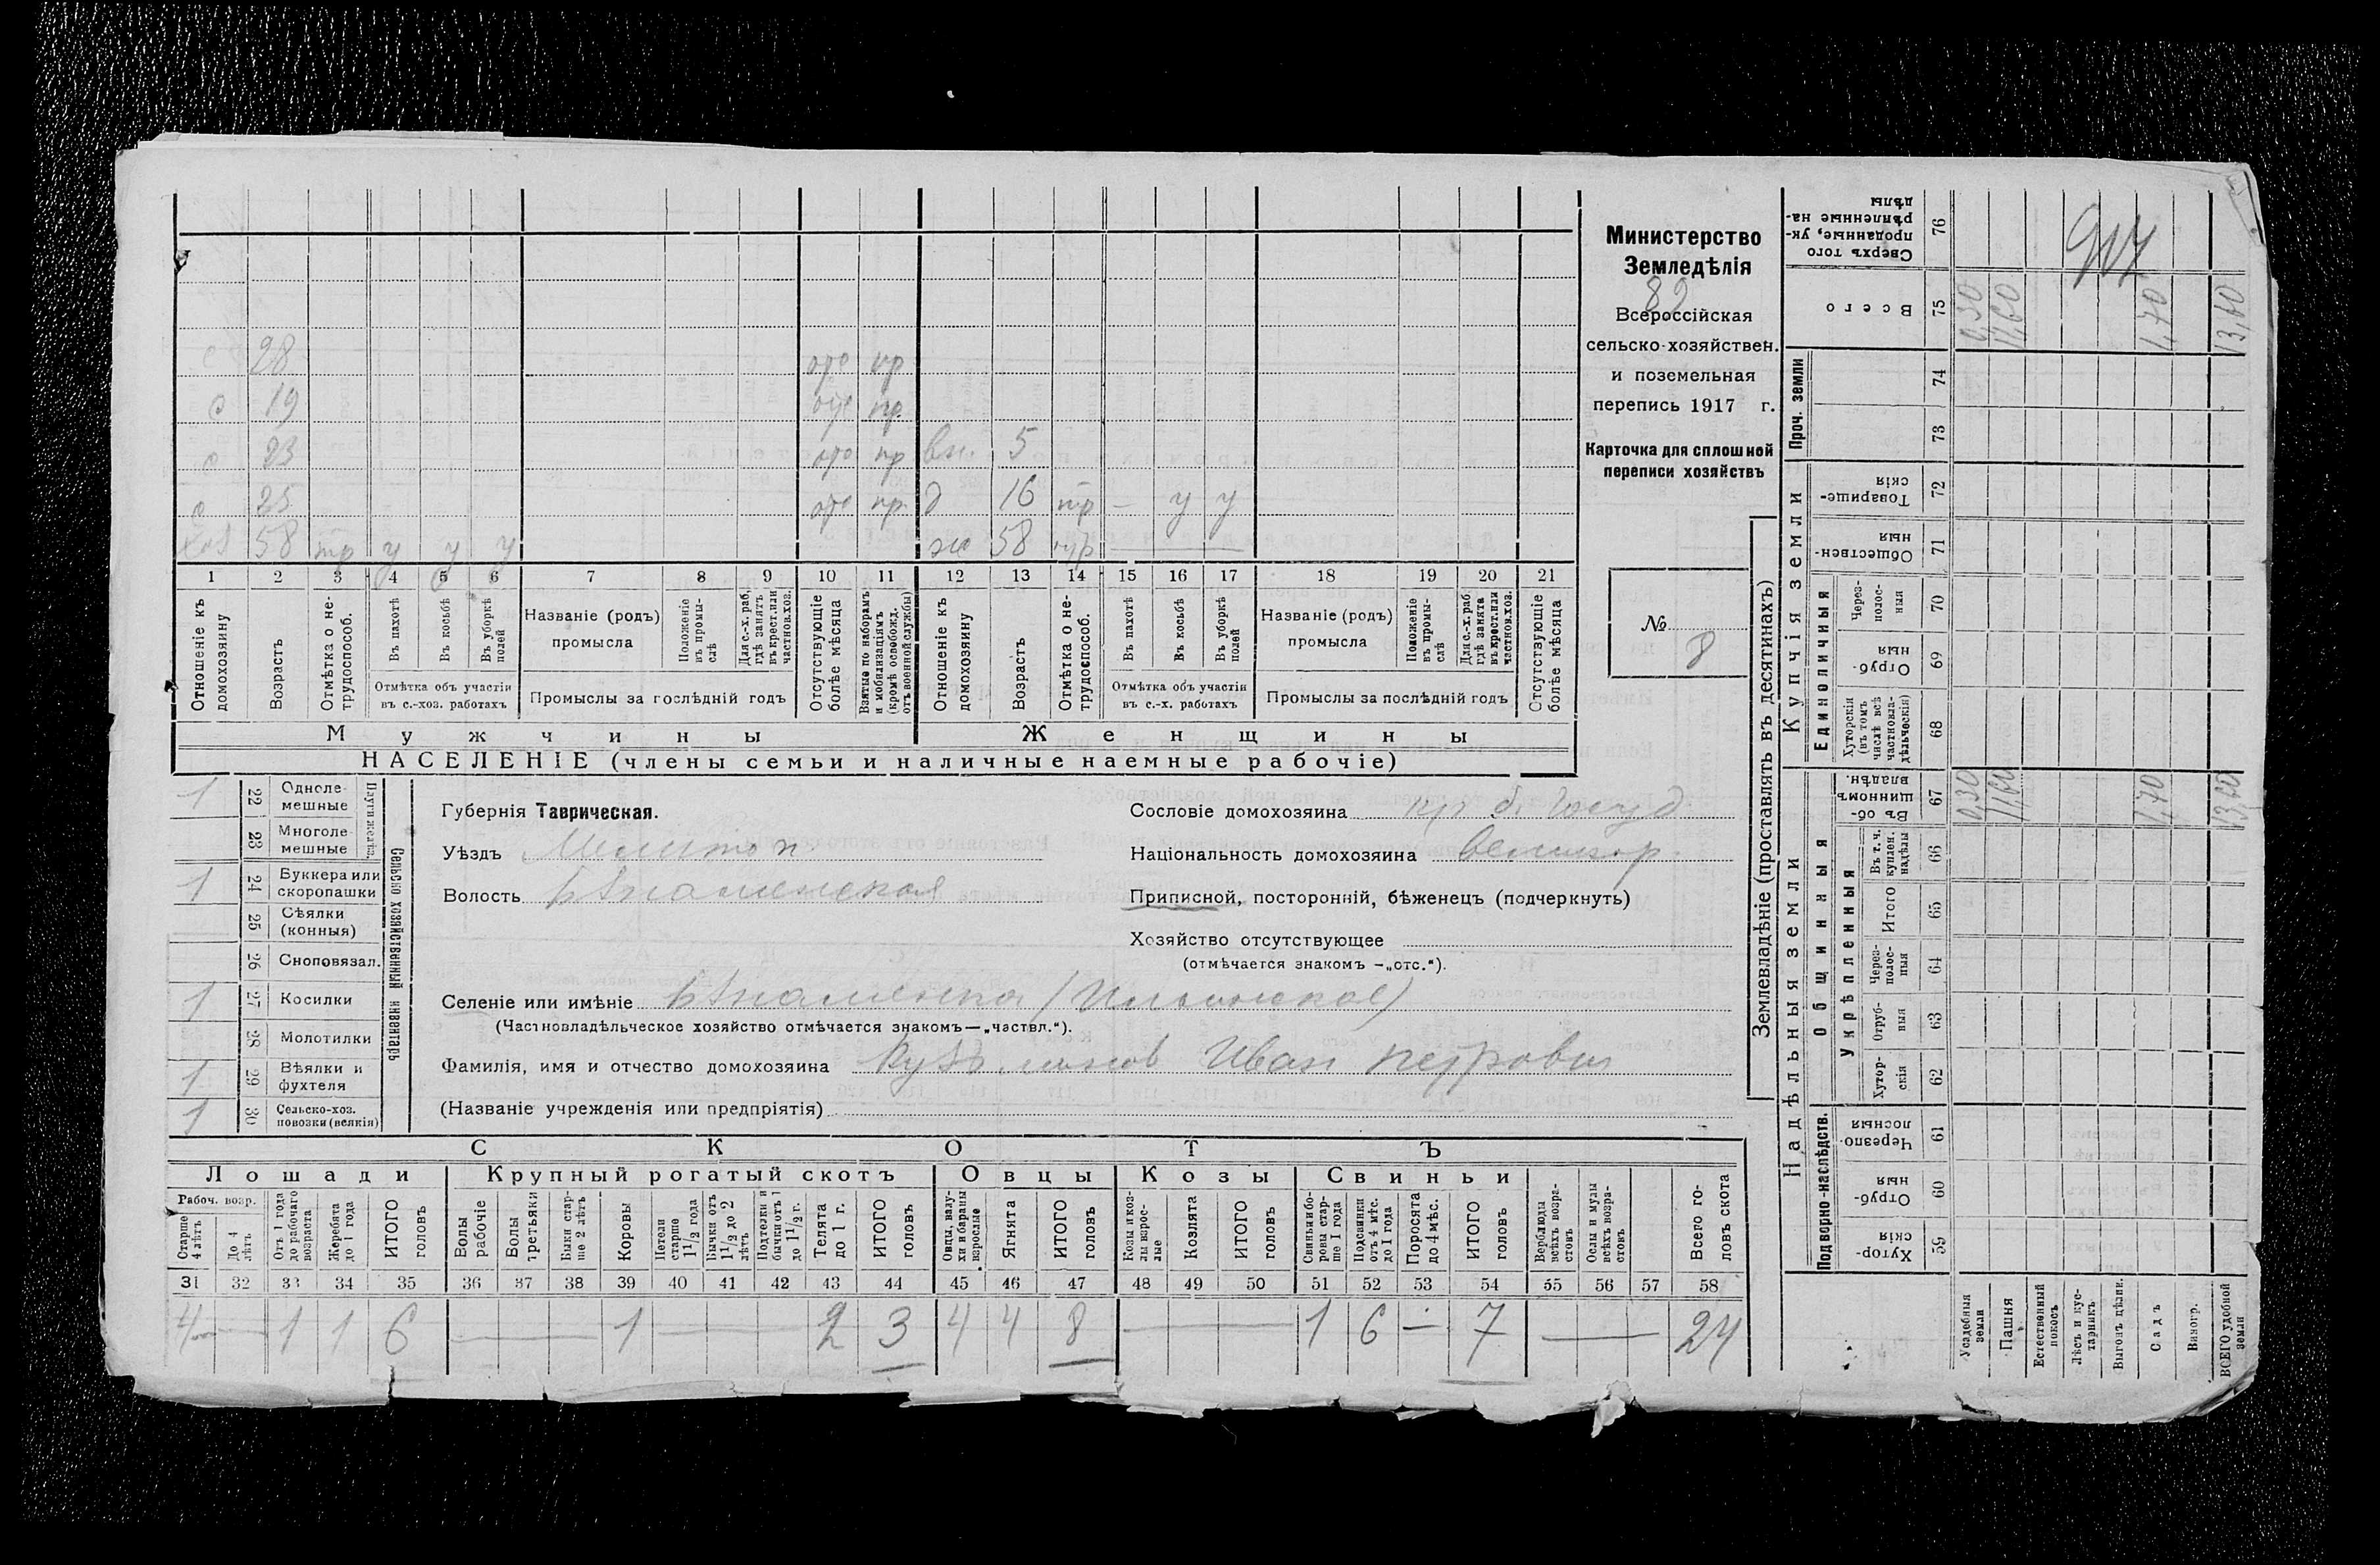 Министерство
Земледѣлія
82
Всероссійская
сельско-хозяйствен.
и поземельная
перепись 1917 г.
Карточка для сплошной
переписи хозяйствъ
№ 8
28 отс пр
с 19 отс пр.
с 23 отс пр вн. 5
с 25 отс пр. д 16 тр — у у
хоз 58 тр у у у ж 58 —
1 2 3 4 5 6 7 8 9 10 11 12 13 14 15 16 17 18 19 20 21
Отношеніе къ домохозяину
Возрастъ
Отмѣтка о не-трудоспособ.
Въ пахотѣ
Въ косьбѣ
Въ уборкѣ полей
Отмѣтка объ участіи въ с.-хоз. работахъ
Названіе (родъ) промысла
Положеніе въ промы-слѣ
Для с.-х. раб, гдѣ занятъ въ крест. или частнов. хоз.
Промыслы за послѣдній годъ
Отсутствующіе болѣе мѣсяца
Взятые по наборамъ и мобилизаціямъ (кромѣ освобожд. отъ военной службы)
Отношеніе къ домохозяину
Возрастъ
Отмѣтка о не-трудоспособ.
Въ пахотѣ
Въ косьбѣ
Въ уборкѣ полей
Отмѣтка объ участіи въ с.-х. работахъ
Названіе (родъ) промысла
Положеніе въ промы-слѣ
Для с.-х. раб. гдѣ занята въ крест. или частнов. хоз.
Промыслы за послѣдній годъ
Отсутствующіе болѣе мѣсяца
Мужчины Женщины
НАСЕЛЕНІЕ (члены семьи и наличные наемные рабочіе)
1 22 Одноле-мешные
23 Многоле-мешные
Плуги желѣз.
1 24 Буккера или скоропашки
25 Сѣялки (конныя)
26 Сноповязал.
1 27 Косилки
28 Молотилки
1 29 Вѣялки и фухтеля
1 30 Сельско-хоз. повозки (всякія)
Сельско хозяйственный инвентарь
Губернія Таврическая.
Уѣздъ Мелитоп.
Волость Знаменская
Сословіе домохозяина кр. б. Госуд
Національность домохозяина великор.
Приписной, посторонній, бѣженецъ (подчеркнуть)
Хозяйство отсутствующее
(отмѣчается знакомъ —„отс.“).
Селеніе или имѣніе Знаменка (Ильинское)
(Частновладѣльческое хозяйство отмѣчается знакомъ—„частвл.“).
Фамилія, имя и отчество домохозяина Кузьминов Иван Петрович
(Названіе учрежденія или предпріятія)
СКОТЪ
Лошади Крупный рогатый скотъ Овцы Козы Свиньи
Рабоч. возр.
Старше 4 лѣтъ
До 4 лѣтъ
Отъ 1 года до рабочаго возраста
Жеребята до 1 года
ИТОГО головъ
Волы рабочіе
Волы третьяки
Быки стар-ше 2 лѣтъ
Коровы
Нетели старше 1 1/2 года
Бычки отъ 1 1/2 до 2 лѣтъ
Подтелки и бычки отъ 1 до 1 1/2 г.
Телята до 1 г.
ИТОГО головъ
Овцы, валу-хи и бараны взрослые
Ягнята
ИТОГО головъ
Козы и коз-лы взрос-лые
Козлята
ИТОГО головъ
Свиньи и бо-ровы стар-ше 1 года
Подсвинки отъ 4 мѣс. до 1 года
Поросята до 4 мѣс.
ИТОГО головъ
Верблюды всѣхъ возра-стовъ
Ослы и мулы всѣхъ возра-стовъ
Всего го-ловъ скота
31 32 33 34 35 36 37 38 39 40 41 42 43 44 45 46 47 48 49 50 51 52 53 54 55 56 57 58
4 — 1 1 6 — 1 — 2 3 4 4 8 — 1 6 — 7 — 24
Землевладѣніе (проставлять въ десятинахъ)
Надѣльныя земли Купчія земли Проч. земли
Подворно-наслѣдств.
Общинныя
Укрѣпленныя
Единоличныя
Хутор-скія 59
Отруб-ныя 60
Черезпо-лосныя 61
Хутор-скія 62
Отруб-ныя 63
Через-полос-ныя 64
Итого 65
Въ т. ч. куплен. надѣлы 66
Въ об-щинномъ владѣн. 67
Хуторскія (въ томъ числѣ всѣ частновла-дѣльческія) 68
Отруб-ныя 69
Через-полос-ныя 70
Обществен-ныя 71
Товарище-скія 72
73
74
Всего 75
Сверхъ того проданные, ук-рѣпленные на-дѣлы 76
Усадебныя земли
Пашня
Естественный покосъ
Лѣсъ и кус-тарникъ
Выгонъ цѣлин.
Садъ
Виногр.
ВСЕГО удобной земли
0,30 11,60 1,70 13,60
0,30 11,60 1,70 13,60